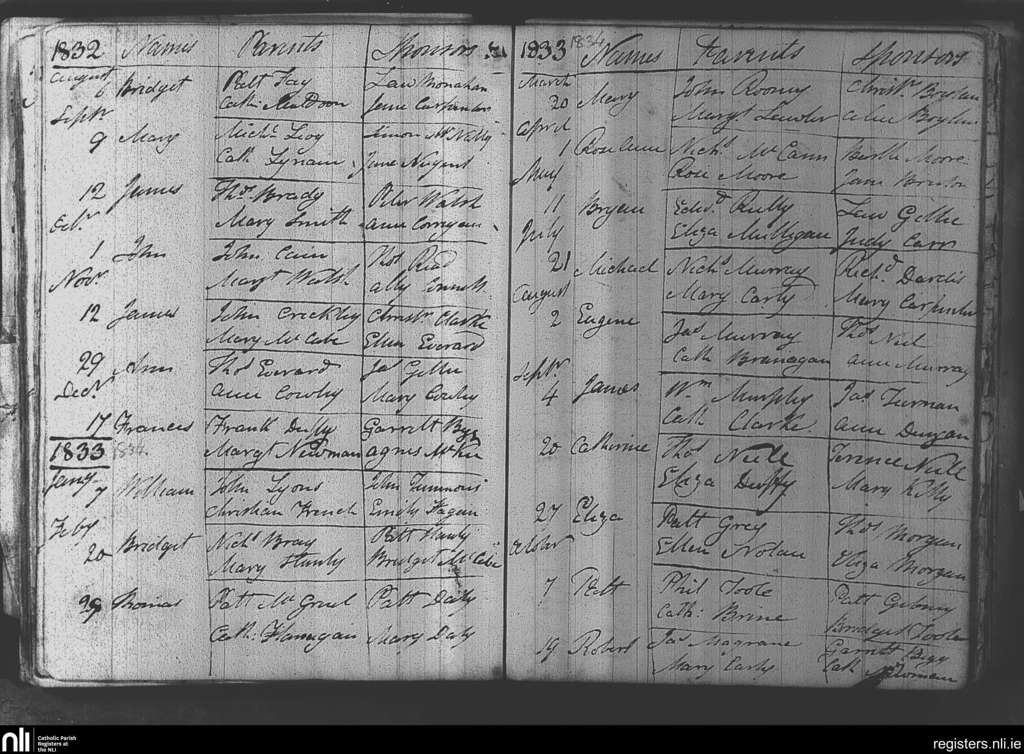 1832 Names Parents Sponsors
August
6 Bridget Patt Fay Law Monahan
Cath: Jane Carpenter
Septr
9 Mary Michl Leoy Simon McNally
Cath Lynam Jane Nugent
12 James Thos Brady Peter Walsh
Mary Smith Ann Corrigan
Octr
1 John John Cain Thos Reid
Margt Walsh Ally
Novr
12 James John Crickley Christr Clarke
Mary McCabe Ellen Everard
29 Ann Thos Everard Jas Gellic
Ann Cowley Mary Cowley
Decr
17 Frances Frank Duffy Garrett Byg
Margt Newman Agnes
1833 1834
Jany
7 William John Lyons John Timmons
Christian French Emily Fagan
Feby
20 Bridget Nichs Bray Patt Hanly
Mary Hanly Bridget McCabe
28 Thomas Patt Patt Daly
Cath: Flanagan Mary Daly
1833 1834 Names Parents Sponsors
March
20 Mary John Rooney Christr Boylan
Margt Lawlor Boylan
April
1 Rose Ann Nichs McCann Bartle Moore
Rose Moore Jane
May
11 Bryan Edwd Reilly Law Gellic
Eliza Mulligan Judy Carr
July
21 Michael Nichs Murray Richd Dardis
Mary Carty Mary Carpenter
August
2 Eugene Jas Murray Thos Niel
Cath Branagan Ann Murray
Septr
4 James Wm Murphy Jas Turnan
Cath Clarke Ann Dungan
20 Catherine Thos Neill Terence Neill
Eliza Duffy Mary Kelly
27 Eliza Patt Grey Thos Morgan
Ellen Nolan Eliza Morgan
October
7 Patt Phil Toole Patt Gibney
Cath: Brine Bridget Toole
19 Robert Jas Magrane Garrett Bigg
Mary Early Cath Newman
nli Catholic Parish
Registers at
the NLI
registers.nli.ie